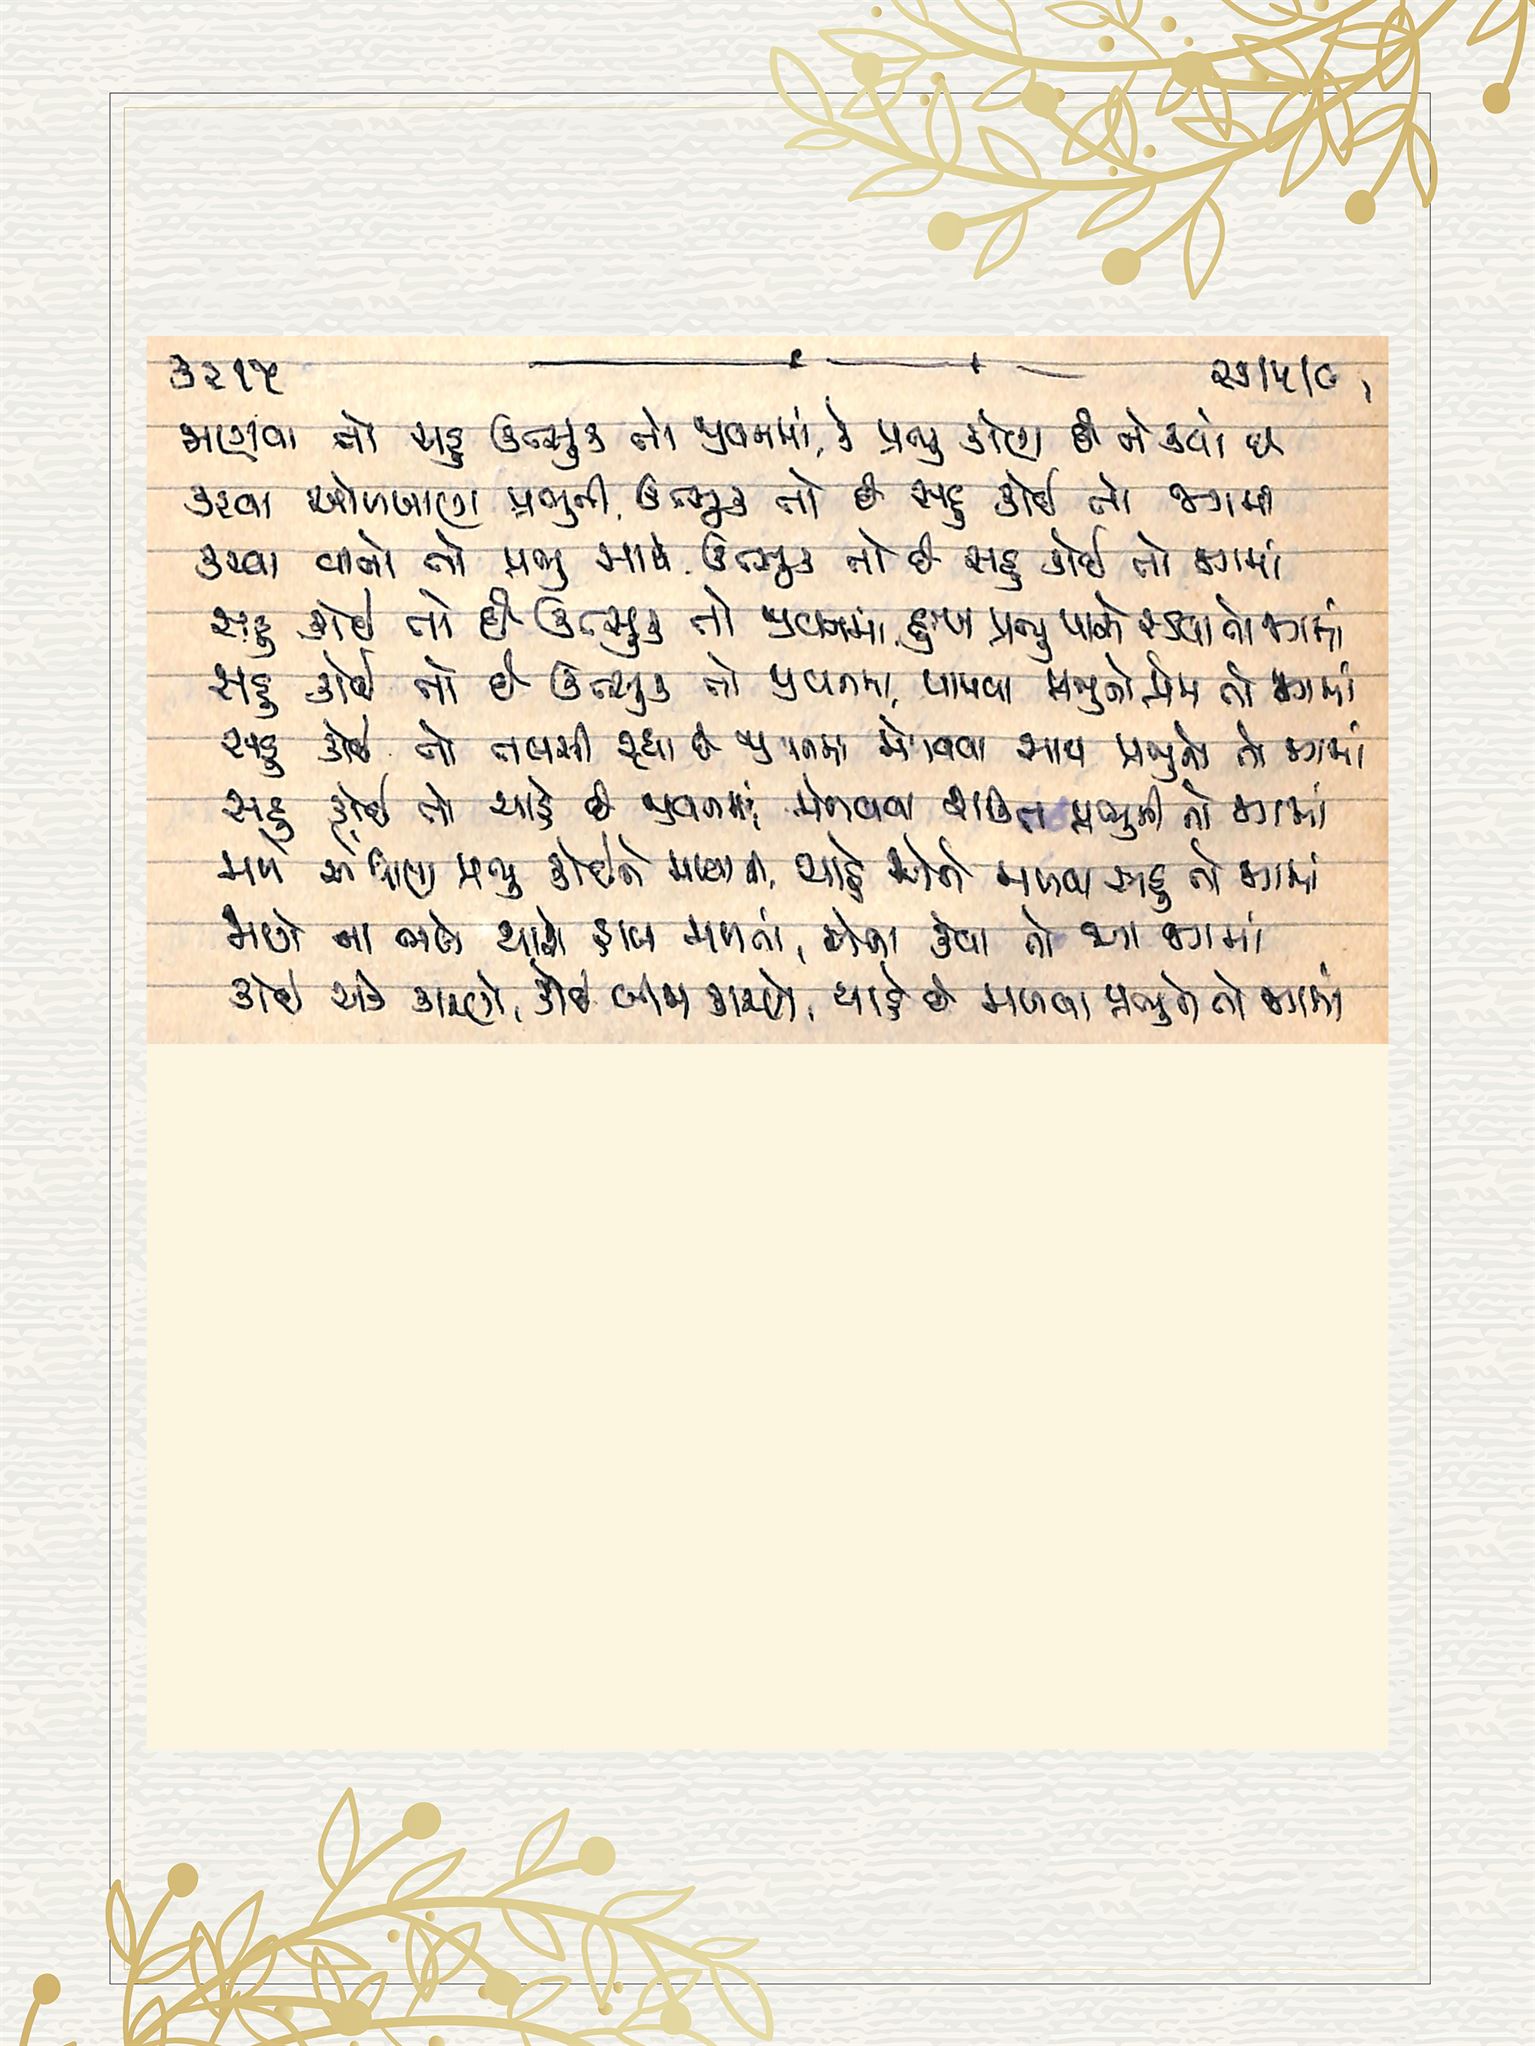 ૩૨૧૫
જાણવા તો સહુ ઉત્સુક તો જીવનમાં, કે પ્રભુ કોણ છે ને કેવો છે
કરવા ઓળખાણ પ્રભુની, ઉત્સુક તો છે સહુ કોઈ તો જગમાં
કરવા વાતો તો પ્રભુ સાથે, ઉત્સુક તો છે સહુ કોઈ તો જગમાં
સહુ કોઈ તો છે ઉત્સુક તો જીવનમાં, દુઃખ પ્રભુ પાસે રડવા તો જગમાં
સહુ કોઈ તો છે ઉત્સુક તો જીવનમાં, પામવા પ્રભુનો પ્રેમ તો જગમાં
સહુ કોઈ તો તલસી રહ્યા છે જીવનમાં મેળવવા સાથ પ્રભુનો તો જગમાં
સહુ કોઈ તો ચાહે છે જીવનમાં, મેળવવા શક્તિ પ્રભુની તો જગમાં
મળે પ્રભુ કોઈને ચાહે એને મળવા સહુ તો જગમાં
ના મળતાં, એના કેવા તો આ જગમાં
કોઈ એક કારણે, કોઈ બીજા કારણે, ચાહે છે મળવા પ્રભુને તો જગમાં